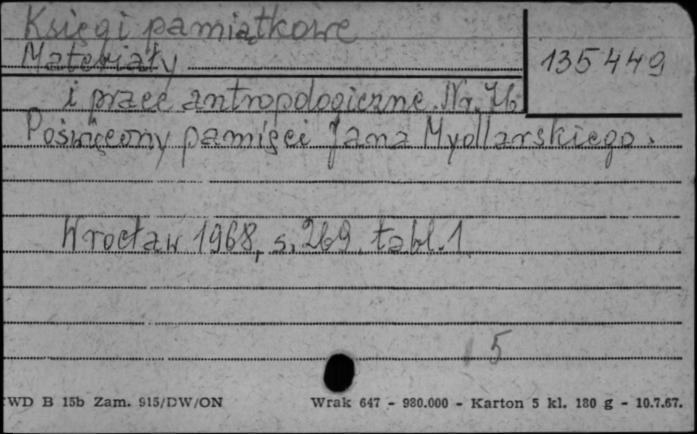 Księgi pamiątkowe
Materiały
135449
i prace antropologiczne. Nr. 76
Poświęcony pamięci Jana Mydlarskiego.
Wrocław 1968, s. 269. tabl. 1
5
WD B 15b Zam. 915/DW/ON Wrak 647 - 980.000 - Karton 5 kl. 180 g - 10.7.67.